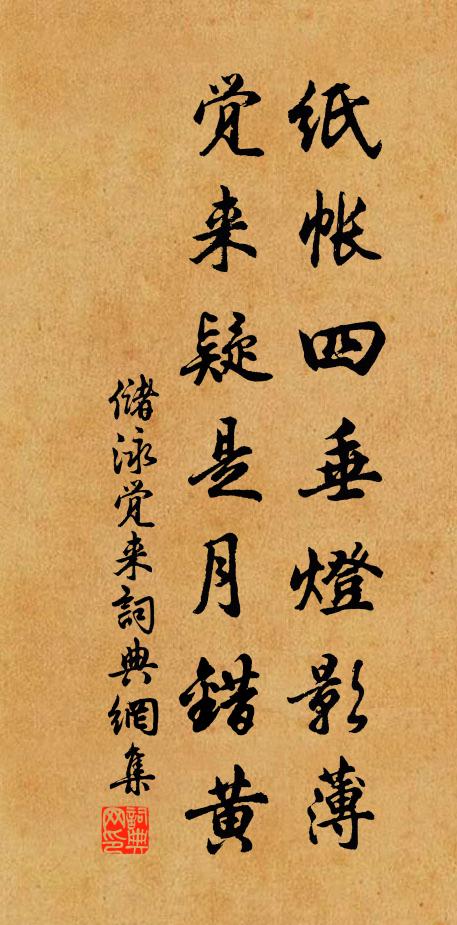 纸帐四垂燈影薄
觉来疑是月錯黄
储泳觉来詞典網集
詞典网印